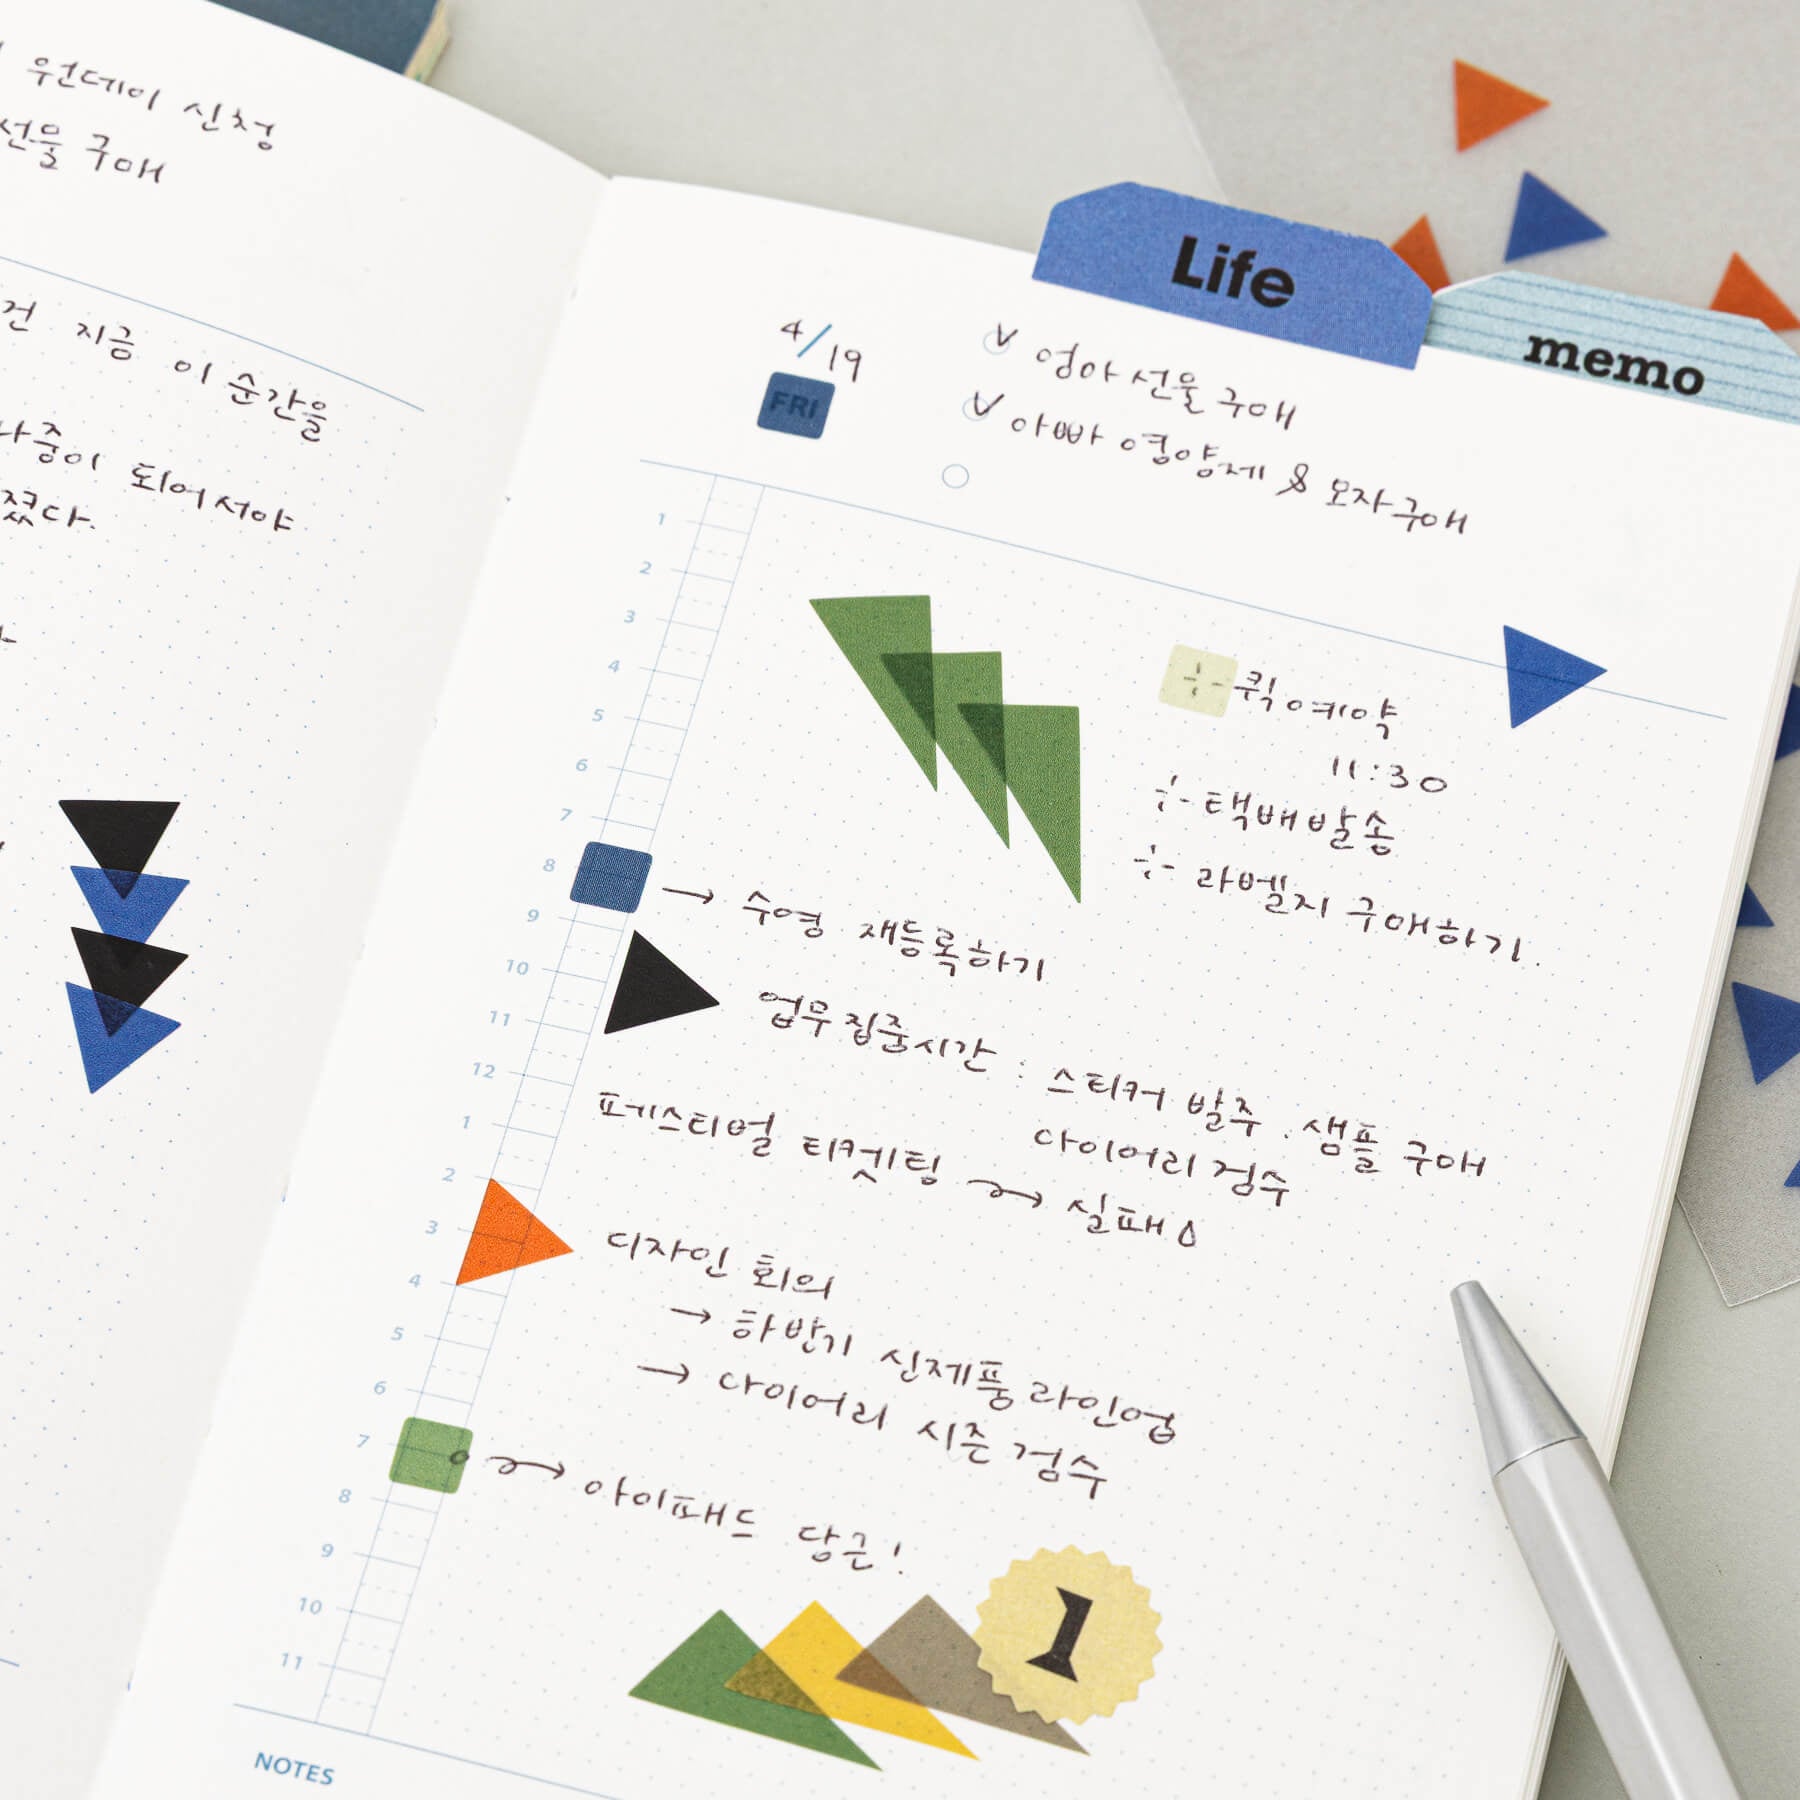 원데이 신청
선물 구매
건 지금 이 순간을
나중이 되어서야
졌다.
Life
memo
4/19
FRI
영아 선물 구매
아빠 영양제 & 모자구매
1
2
3
4
5
6
7
8
9
10
11
12
1
2
3
4
5
6
7
8
9
10
11
퀵 예약
11:30
택배발송
라벨지 구매하기.
→ 수영 재등록하기
업무집중시간 : 스티커 발주. 샘플 구매
다이어리 검수
페스티벌 티켓팅 → 실패
디자인 회의
→ 하반기 신제품 라인업
→ 다이어리 시즌 검수
→ 아이패드 당근!
1
NOTES